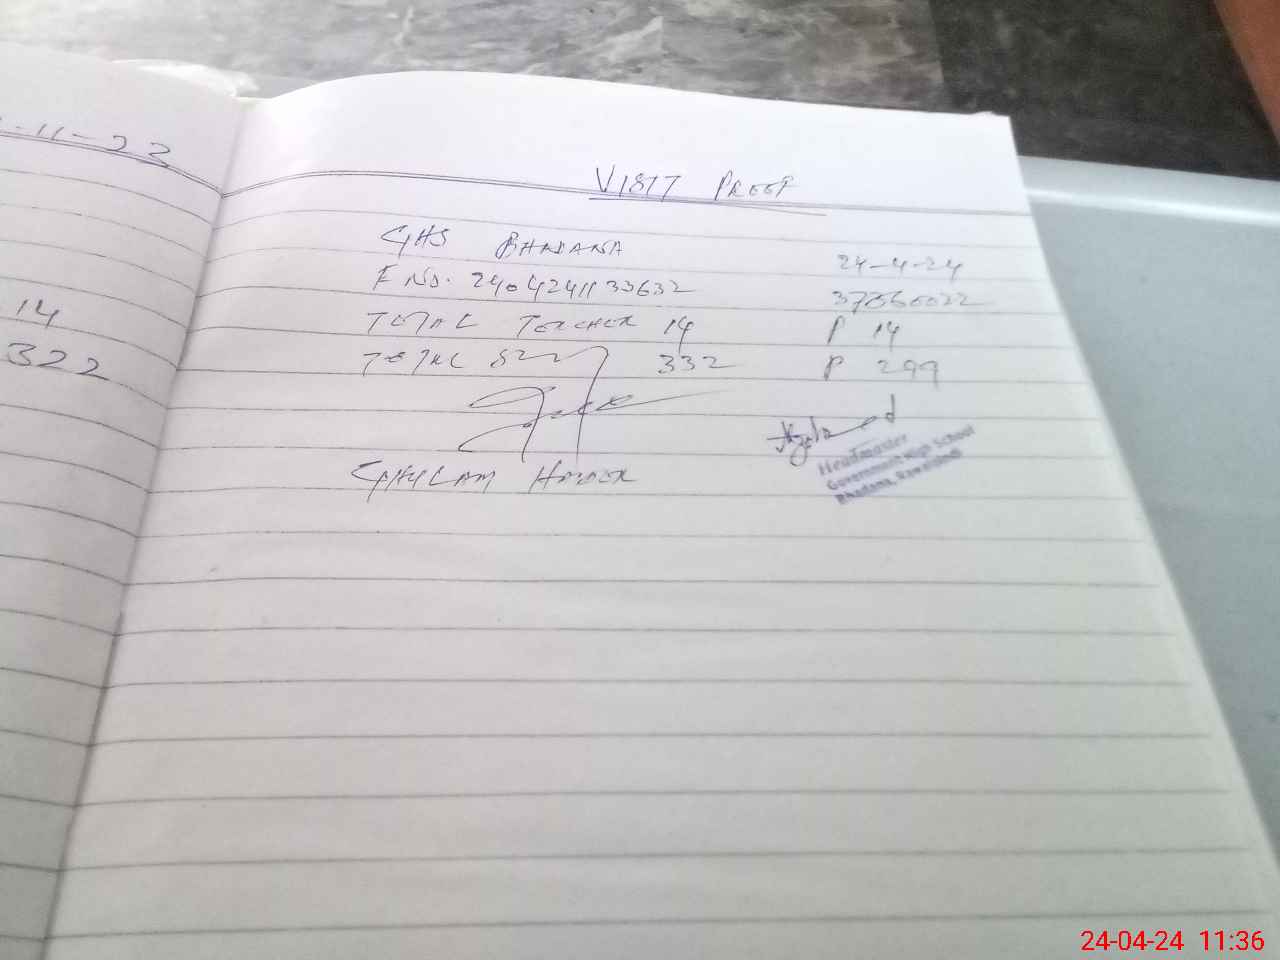 -11-23
14
322
VISIT PROOF
GHS BHADANA 24-4-24
F NO. 2404241133632 37360022
TOTAL TEACHER 14 P 14
TOTAL STU 332 P 299
GHULAM HAIDER
Headmaster
Government High School
Bhadana, Rawalpindi
24-04-24 11:36